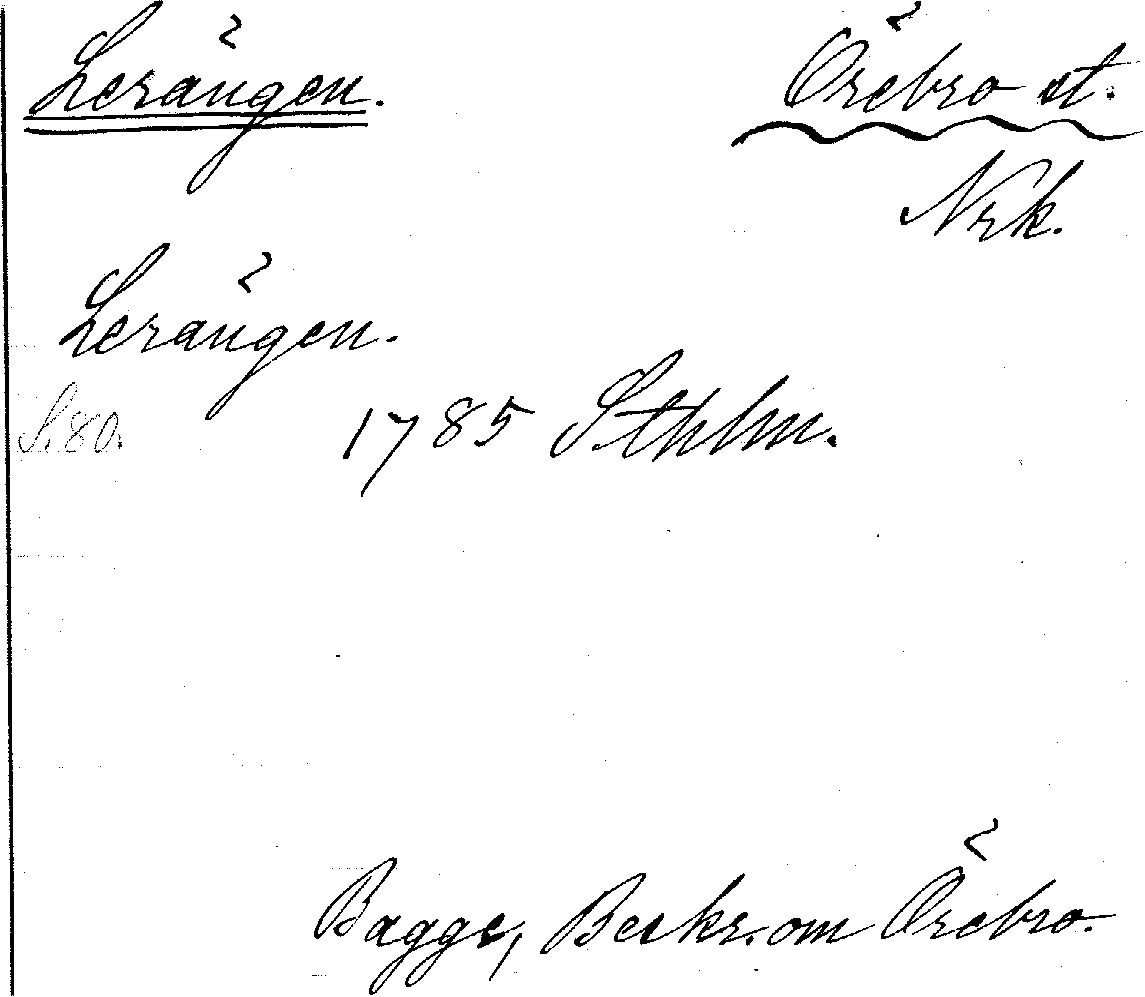 Lerängen. Örebro st.
Nrk.
Lerängen.
S. 80. 1785 Sthlm.
Bagge, Beskr. om Örebro.